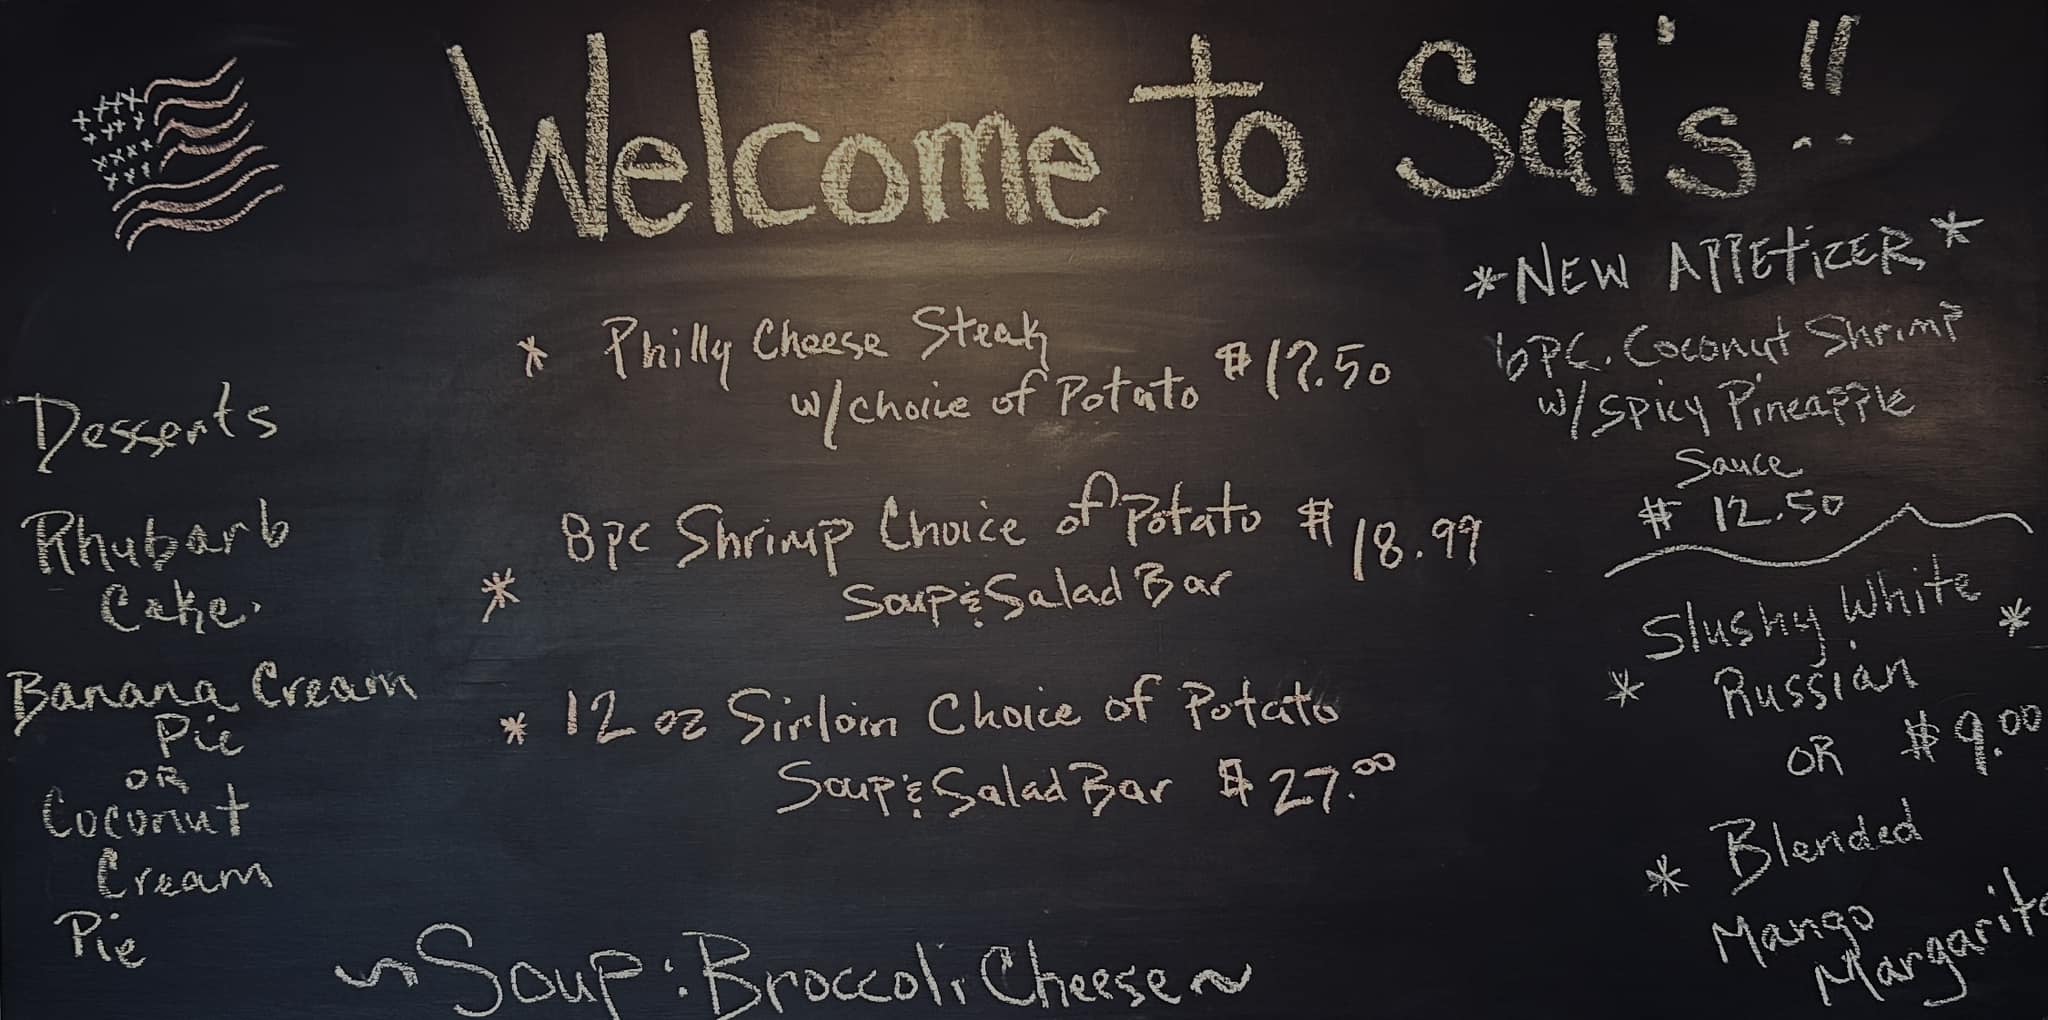 Welcome to Sal's!!
* Philly Cheese Steak
w/choice of Potato $17.50
* 8pc Shrimp Choice of Potato $18.99
Soup & Salad Bar
* 12 oz Sirloin Choice of Potato
Soup & Salad Bar $27.00
~Soup: Broccoli Cheese~
Desserts
Rhubarb
Cake.
Banana Cream
Pie
OR
Coconut
Cream
Pie
*NEW APPETIZER*
6pc. Coconut Shrimp
w/ Spicy Pineapple
Sauce
$12.50
* Slushy White *
Russian
OR $9.00
* Blended
Mango
Margarita